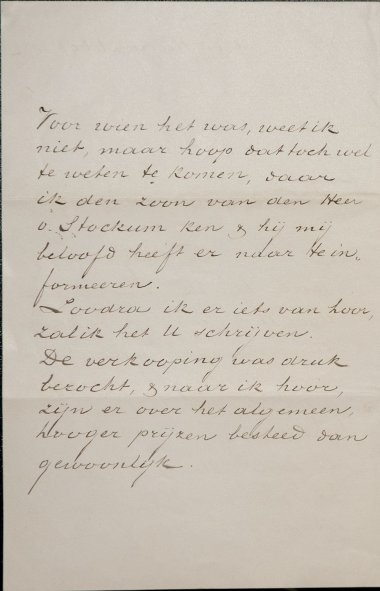 Voor wien het was, weet ik
niet, maar hoop dat toch wel
te weten te komen, daar
ik den zoon van den Heer
v. Stockum ken & hij mij
beloofd heeft er naar te in-
formeeren.
Zoodra ik er iets van hoor,
zal ik het U schrijven.
De verkooping was druk
bezocht, & naar ik hoor,
zijn er over het algemeen,
hooger prijzen besteed dan
gewoonlijk.